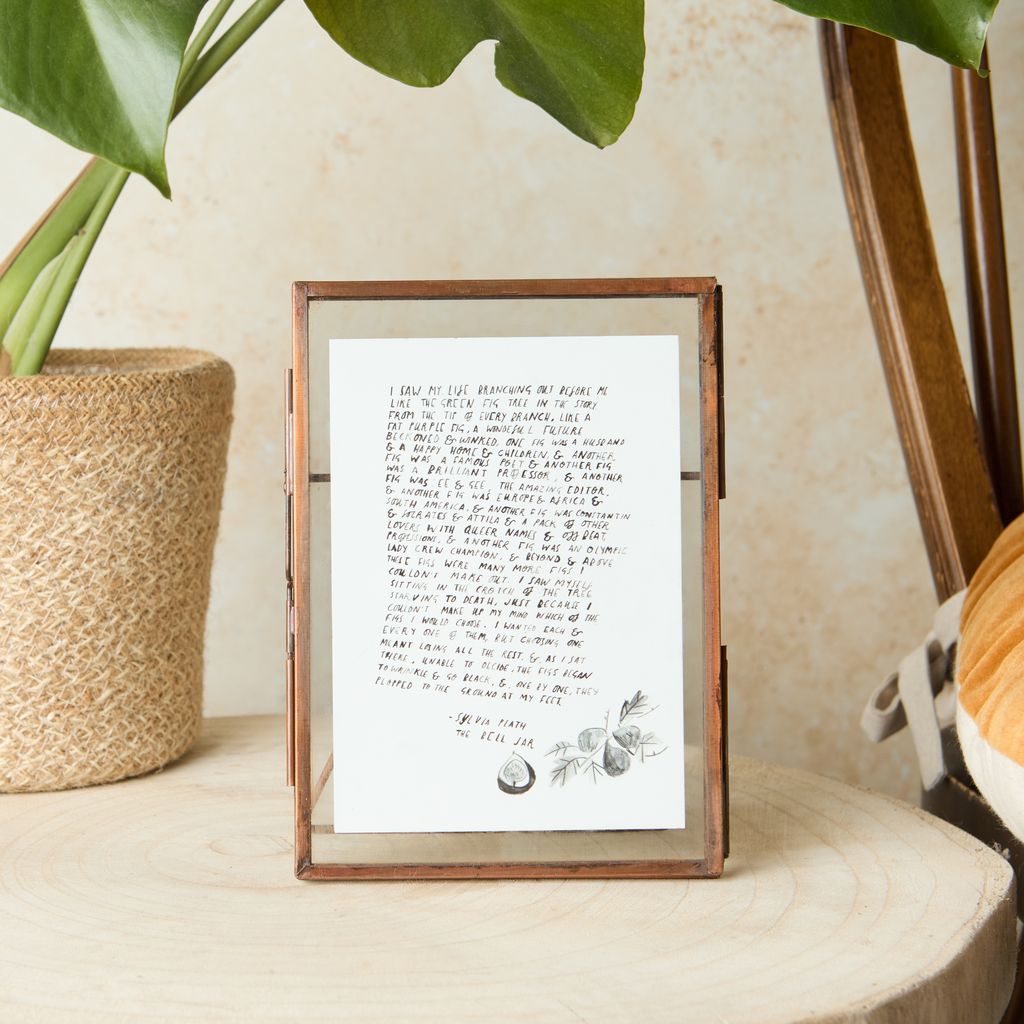 I SAW MY LIFE BRANCHING OUT BEFORE ME
LIKE THE GREEN FIG TREE IN THE STORY
FROM THE TIP OF EVERY BRANCH, LIKE A
FAT PURPLE FIG, A WONDEFULL FUTURE
BECKONED & WINKED. ONE FIG WAS A HUSBAND
& A HAPPY HOME & CHILDREN, & ANOTHER
FIG WAS A FAMOUS POET & ANOTHER FIG
WAS A BRILLIANT PROFESSOR, & ANOTHER
FIG WAS EE & GEE, THE AMAZING EDITOR,
& ANOTHER FIG WAS EUROPE & AFRICA &
SOUTH AMERICA, & ANOTHER FIG WAS CONSTANTIN
& SOCRATES & ATTILA & A PACK OF OTHER
LOVERS WITH QUEER NAMES & OFF BEAT
PROFESSIONS, & ANOTHER FIG WAS AN OLYMPIC
LADY CREW CHAMPION, & BEYOND & ABOVE
THESE FIGS WERE MANY MORE FIGS I
COULDN'T MAKE OUT. I SAW MYSELF
SITTING IN THE CROTCH OF THE TREE
STARVING TO DEATH, JUST BECAUSE I
COULDN'T MAKE UP MY MIND WHICH OF THE
FIGS I WOULD CHOOSE. I WANTED EACH &
EVERY ONE OF THEM, BUT CHOOSING ONE
MEANT LOSING ALL THE REST, &, AS I SAT
THERE, UNABLE TO DECIDE, THE FIGS BEGAN
TO WRINKLE & GO BLACK, &, ONE BY ONE, THEY
PLOPPED TO THE GROUND AT MY FEET
-SYLVIA PLATH
THE BELL JAR